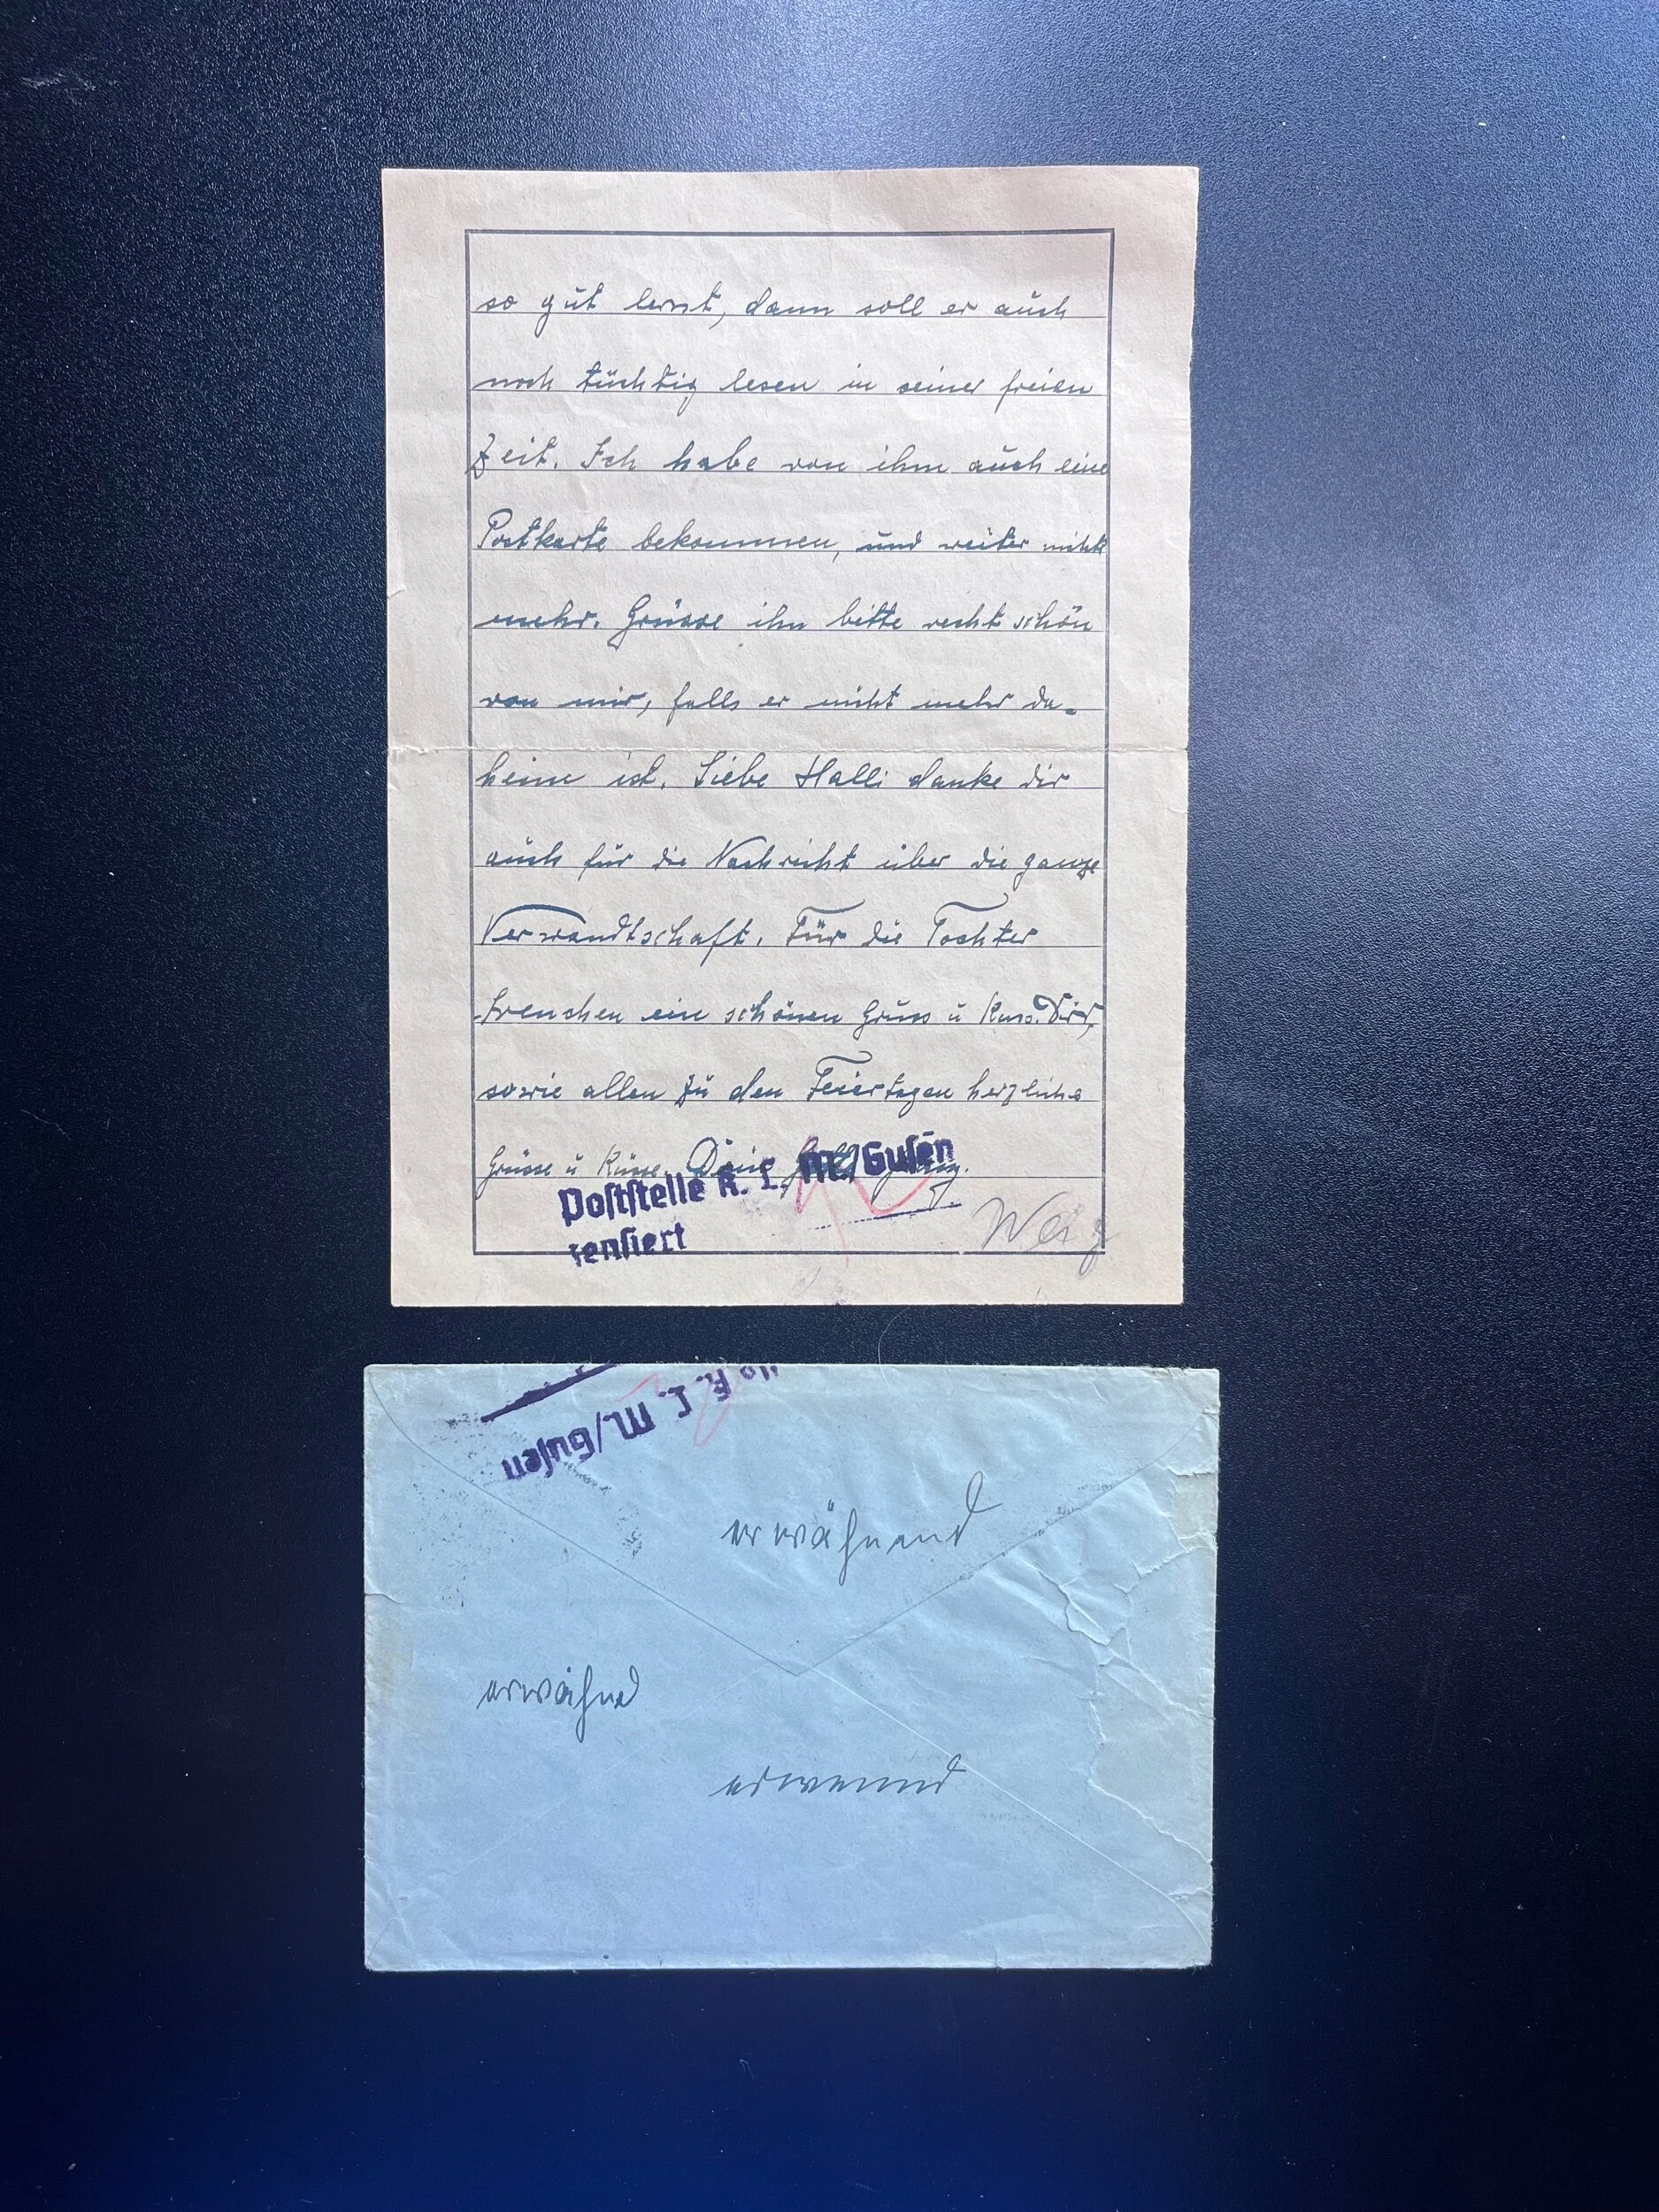 so gut lernt, dann soll er auch
noch tüchtig lesen in seiner freien
Zeit. Ich habe von ihm auch eine
Postkarte bekommen, und weiter nichts
mehr. Grüsse ihn bitte recht schön
von mir, falls er nicht mehr da-
heim ist. Liebe Halli danke dir
auch für die Nachricht über die ganze
Verwandtschaft. Für die Tochter
ein schönen Gruss u Kuss. Dir,
sowie allen zu den Feiertagen herzliche
Grüsse u Küsse. Dein
Poststelle K. L. M./Gusen
zensiert
K. L. M./Gusen
erwähnend
erwähnd